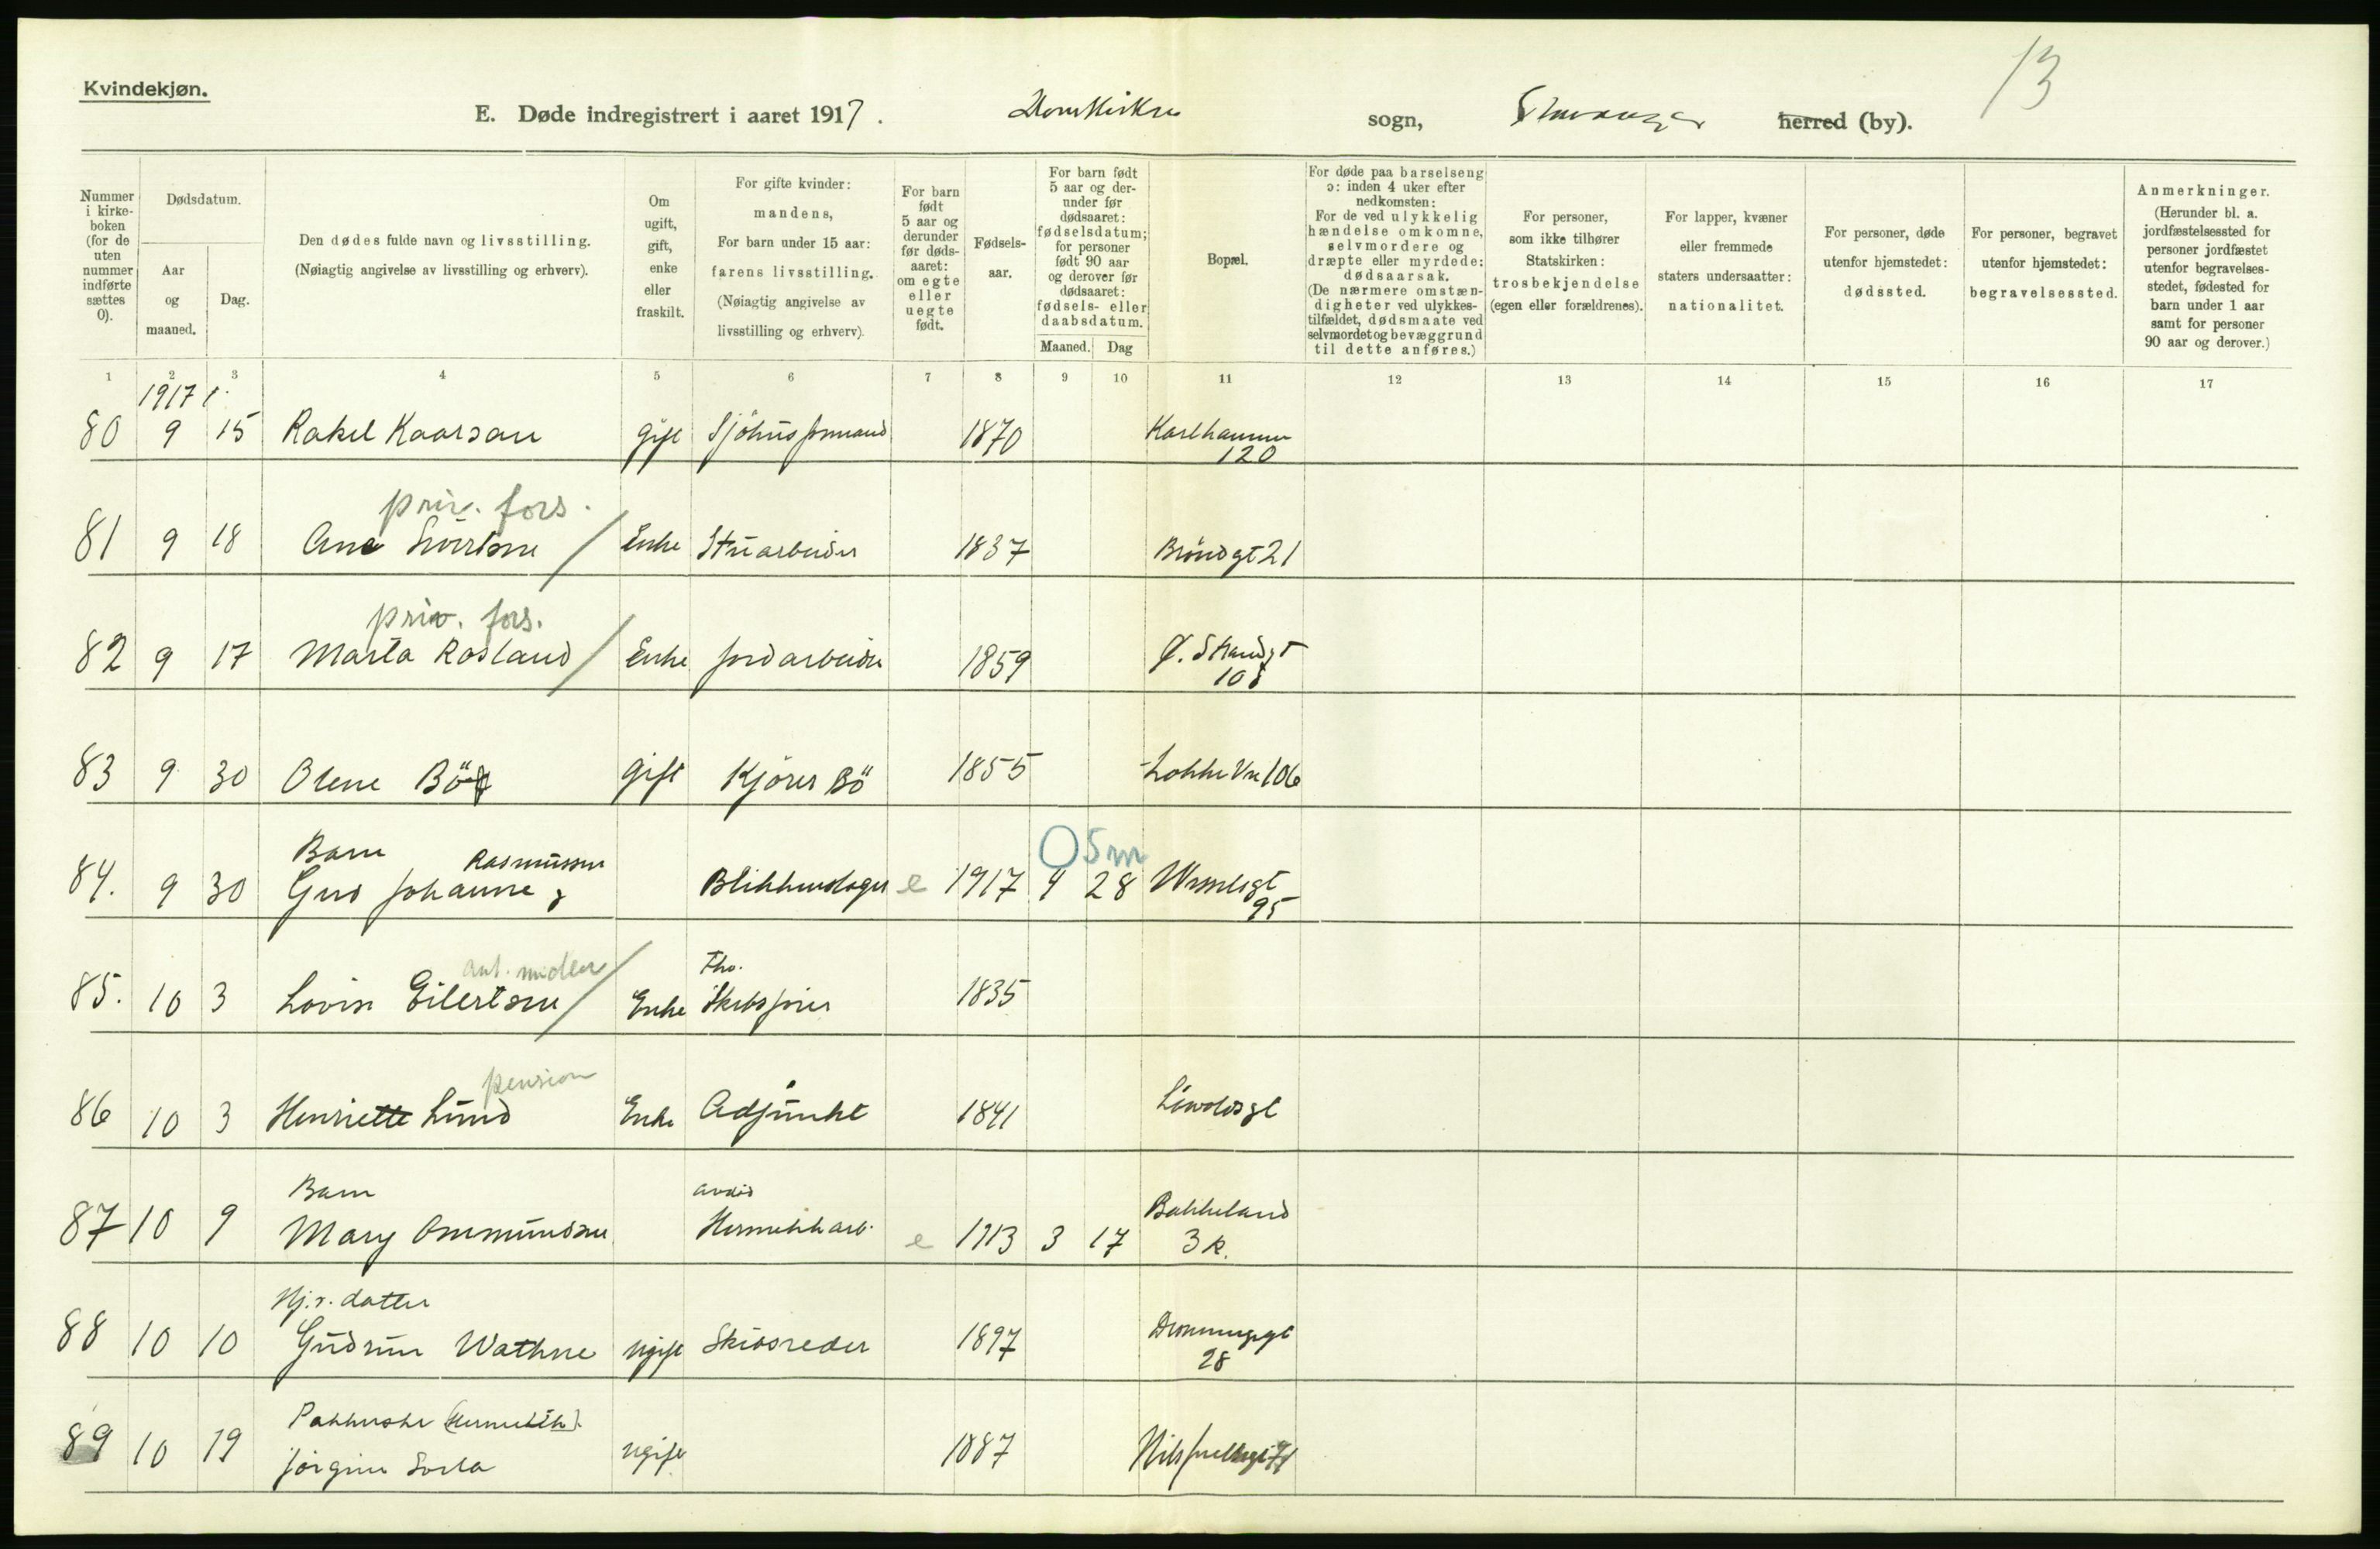 Kvindekjøn.
13
E. Døde indregistrert i aaret 1917. Domkirken sogn, Stavanger herred (by).
Nummer i kirke-boken (for de uten nummer indførte sættes 0).
Dødsdatum.
Aar og maaned.
Dag.
Den dødes fulde navn og livsstilling.
(Nøiagtig angivelse av livsstilling og erhverv).
Om ugift, gift, enke eller fraskilt.
For gifte kvinder: mandens,
For barn under 15 aar: farens livsstilling.
(Nøiagtig angivelse av livsstilling og erhverv).
For barn født 5 aar og derunder før døds-aaret: om egte eller uegte født.
Fødsels-aar.
For barn født 5 aar og der-under før dødsaaret: fødselsdatum; for personer født 90 aar og derover før dødsaaret: fødsels- eller daabsdatum.
Maaned. Dag
Bopæl.
For døde paa barselseng ɔ: inden 4 uker efter nedkomsten:
For de ved ulykkelig hændelse omkomne, selvmordere og dræpte eller myrdede: dødsaarsak.
(De nærmere omstæn-digheter ved ulykkes-tilfældet, dødsmaate ved selvmordet og bevæggrund til dette anføres.)
For personer, som ikke tilhører Statskirken: trosbekjendelse (egen eller forældrenes).
For lapper, kvæner eller fremmede staters undersaatter: nationalitet.
For personer, døde utenfor hjemstedet: dødssted.
For personer, begravet utenfor hjemstedet: begravelsessted.
Anmerkninger.
(Herunder bl. a. jordfæstelsessted for personer jordfæstet utenfor begravelses-stedet, fødested for barn under 1 aar samt for personer 90 aar og derover.)
1 2 3 4 5 6 7 8 9 10 11 12 13 14 15 16 17
1917
80 9 15 Rakel Kaarsen gift Sjöhusformand 1870 Karlhammer
120
priv. fors.
81 9 18 Ane Sivertsen Enke Stuarbeider 1837 Bröndgt 21
priv. fors.
82 9 17 Marta Rosland Enke Jordarbeider 1859 Ø. Strandgt
108
83 9 30 Olene Bö gift Kjörer Bö 1855 Lokke Vn 106
Barn Rasmussen O 5m
84. 9 30 Gud Johanne Blikkenslager e 1917 4 28 Wesselsgt
95
ant. midler Fhv.
85. 10 3 Lovise Eilertsen Enke Skibsfører 1835
pension
86 10 3 Henriette Lund Enke Adjunkt 1841
Barn avdöd Bakkeland
87 10 9 Mary Ommundsen Hermetikkarb. e 1913 3 17 3 R.
Hj.v. datter
88 10 10 Gudrun Wathne ugift Skibsreder 1897 Dronningsgt
28
Pakkerske (Hermetik).
89 10 19 Jörgine ugift 1887